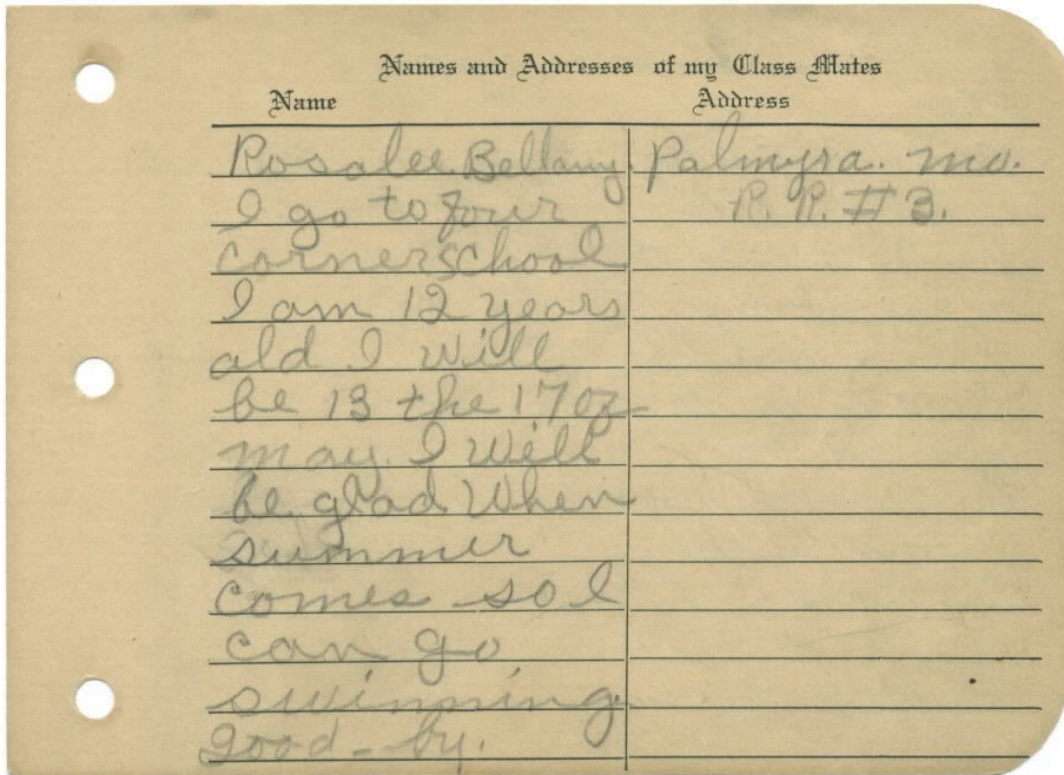 Names and Addresses of my Class Mates
Name Address
Rosalee Bellamy. Palmyra. Mo.
I go to four R. R. #3.
corner school
I am 12 years
old I will
be 13 the 17 of
may. I will
be glad When
summer
comes so I
can go
swinning.
good-by.